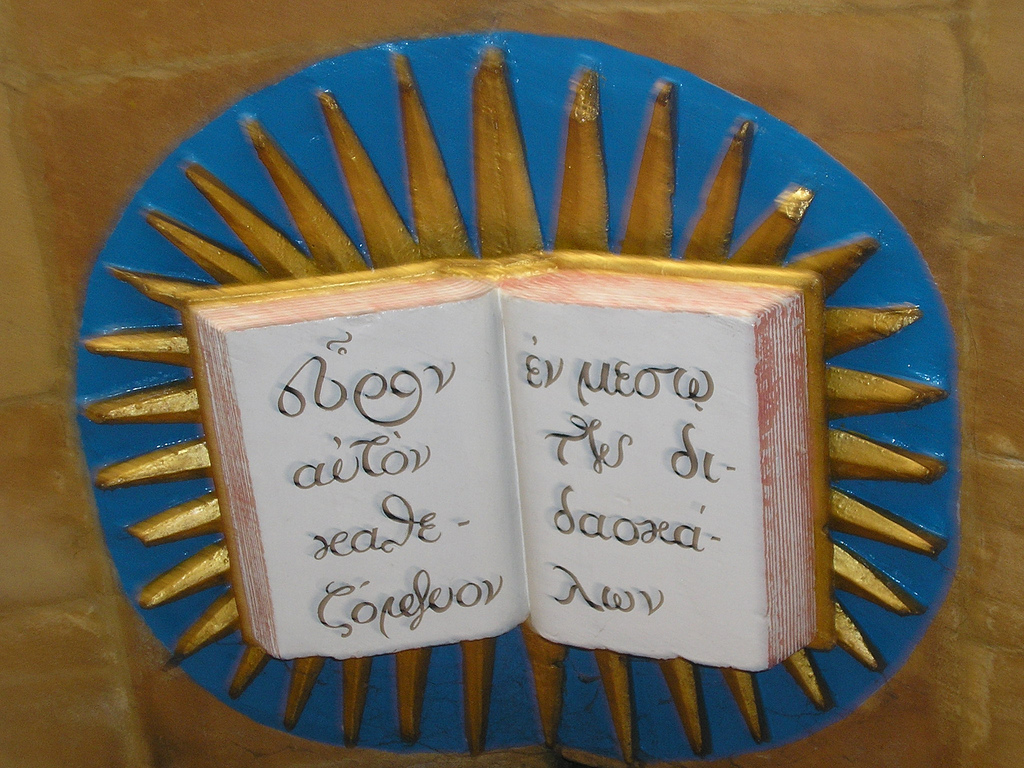 εὗρον
αὐτὸν
καθε-
ζόμενον
ἐν μεσῳ
τῶν δι-
δασκά-
λων